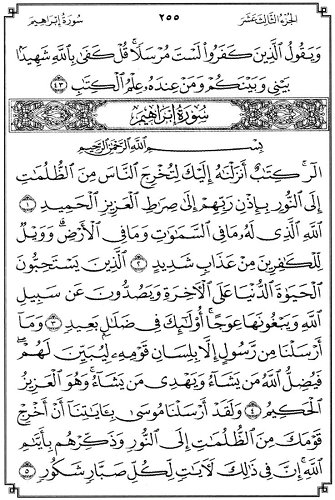 الجزء الثالث عشر ٢٥٥ سورة إبراهيم
وَيَقُولُ الَّذِينَ كَفَرُوا۟ لَسْتَ مُرْسَلًا ۚ قُلْ كَفَىٰ بِاللَّهِ شَهِيدًۢا
بَيْنِى وَبَيْنَكُمْ وَمَنْ عِندَهُۥ عِلْمُ الْكِتَٰبِ ٤٣
سُورَةُ إِبْرَاهِيمَ
بِسْمِ اللَّهِ الرَّحْمَٰنِ الرَّحِيمِ
الٓر ۚ كِتَٰبٌ أَنزَلْنَٰهُ إِلَيْكَ لِتُخْرِجَ النَّاسَ مِنَ الظُّلُمَٰتِ
إِلَى النُّورِ بِإِذْنِ رَبِّهِمْ إِلَىٰ صِرَٰطِ الْعَزِيزِ الْحَمِيدِ ١
اللَّهِ الَّذِى لَهُۥ مَا فِى السَّمَٰوَٰتِ وَمَا فِى الْأَرْضِ ۗ وَوَيْلٌ
لِّلْكَٰفِرِينَ مِنْ عَذَابٍ شَدِيدٍ ٢ الَّذِينَ يَسْتَحِبُّونَ
الْحَيَوٰةَ الدُّنْيَا عَلَى الْءَاخِرَةِ وَيَصُدُّونَ عَن سَبِيلِ
اللَّهِ وَيَبْغُونَهَا عِوَجًا ۚ أُو۟لَٰٓئِكَ فِى ضَلَٰلٍۭ بَعِيدٍ ٣ وَمَآ
أَرْسَلْنَا مِن رَّسُولٍ إِلَّا بِلِسَانِ قَوْمِهِۦ لِيُبَيِّنَ لَهُمْ ۖ
فَيُضِلُّ اللَّهُ مَن يَشَآءُ وَيَهْدِى مَن يَشَآءُ ۚ وَهُوَ الْعَزِيزُ
الْحَكِيمُ ٤ وَلَقَدْ أَرْسَلْنَا مُوسَىٰ بِـَٔايَٰتِنَآ أَنْ أَخْرِجْ
قَوْمَكَ مِنَ الظُّلُمَٰتِ إِلَى النُّورِ وَذَكِّرْهُم بِأَيَّىٰمِ
اللَّهِ ۚ إِنَّ فِى ذَٰلِكَ لَءَايَٰتٍ لِّكُلِّ صَبَّارٍ شَكُورٍ ٥